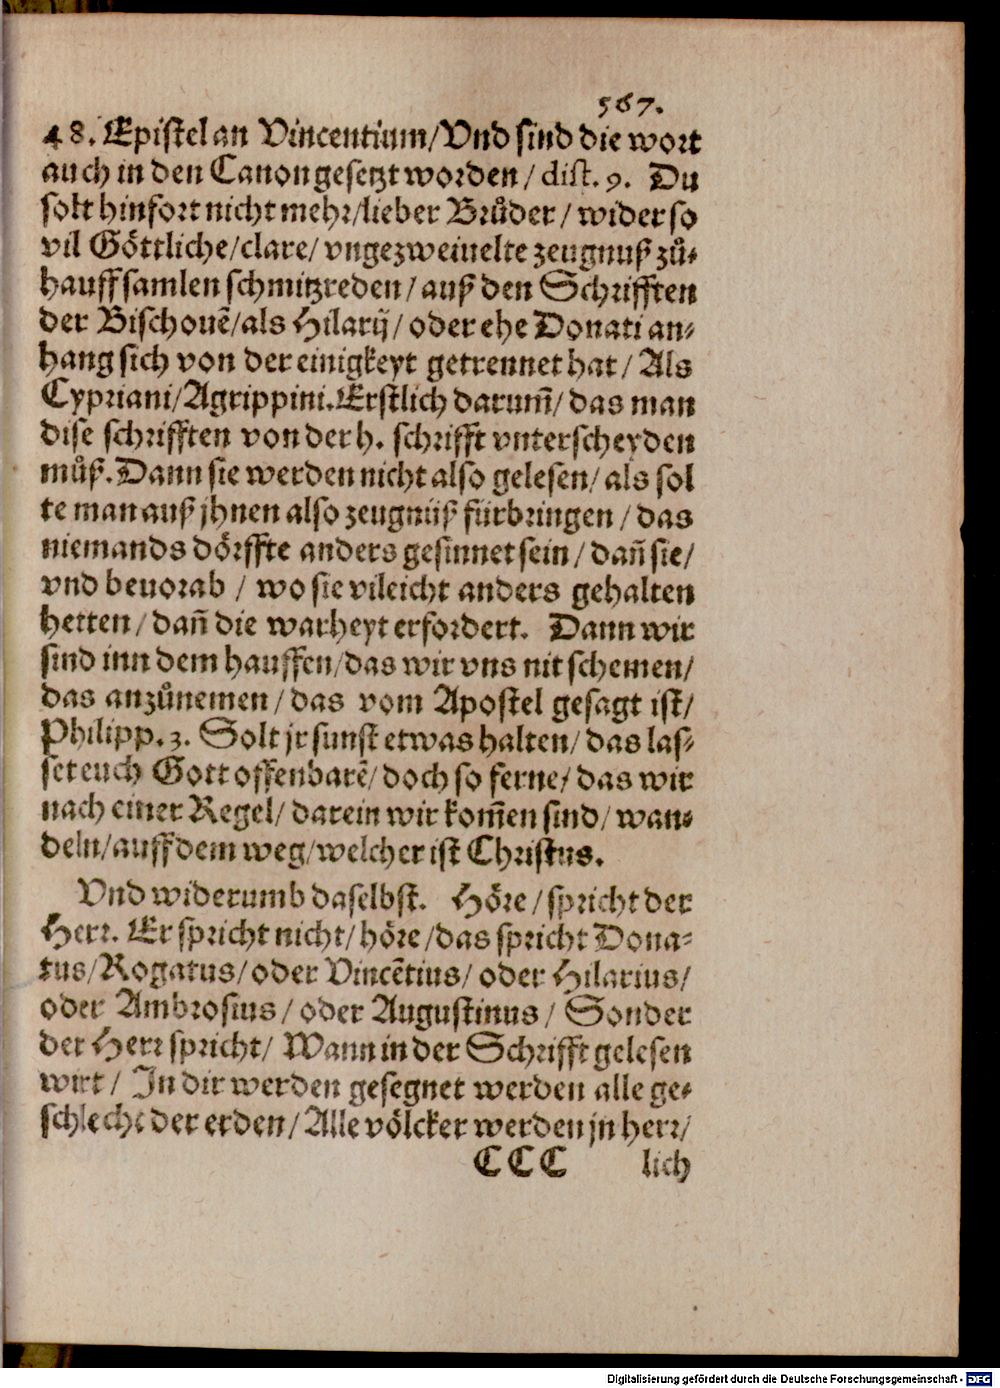 567.
48. Epistel an Vincentium/Vnd sind die wort
auch in den Canon gesetzt worden/ dist. 9. Du
solt hinfort nicht mehr/lieber Brůder/ wider so
vil Göttliche/clare/ vngezweiuelte zeugnuß zů-
hauff samlen schmitzreden/ auß den Schrifften
der Bischouẽ/als Hilarij/ oder ehe Donati an-
hang sich von der einigkeyt getrennet hat/ Als
Cypriani/Agrippini. Erstlich darum̃/ das man
dise schrifften von der h. schrifft vnterscheyden
můß. Dann sie werden nicht also gelesen/ als sol
te man auß jhnen also zeugnüß fürbringen/ das
niemands dörffte anders gesinnet sein/ dañ sie/
vnd beuorab/ wo sie vileicht anders gehalten
hetten/ dañ die warheyt erfordert. Dann wir
sind inn dem hauffen/das wir vns nit schemen/
das anzůnemen/das vom Apostel gesagt ist/
Philipp. 3. Solt jr sunst etwas halten/ das las-
set euch Gott offenbarẽ/ doch so ferne/ das wir
nach einer Regel/ darein wir kom̃en sind/ wan-
deln/auff dem weg/welcher ist Christus.
Vnd widerumb daselbst. Höre/ spricht der
Herr. Er spricht nicht/ höre/das spricht Dona-
tus/Rogatus/oder Vincẽtius/ oder Hilarius/
oder Ambrosius/ oder Augustinus/ Sonder
der Herr spricht/ Wann in der Schrifft gelesen
wirt/ In dir werden gesegnet werden alle ge-
schlecht der erden/ Alle völcker werden jn herr/
CCC lich
Digitalisierung gefördert durch die Deutsche Forschungsgemeinschaft - DFG